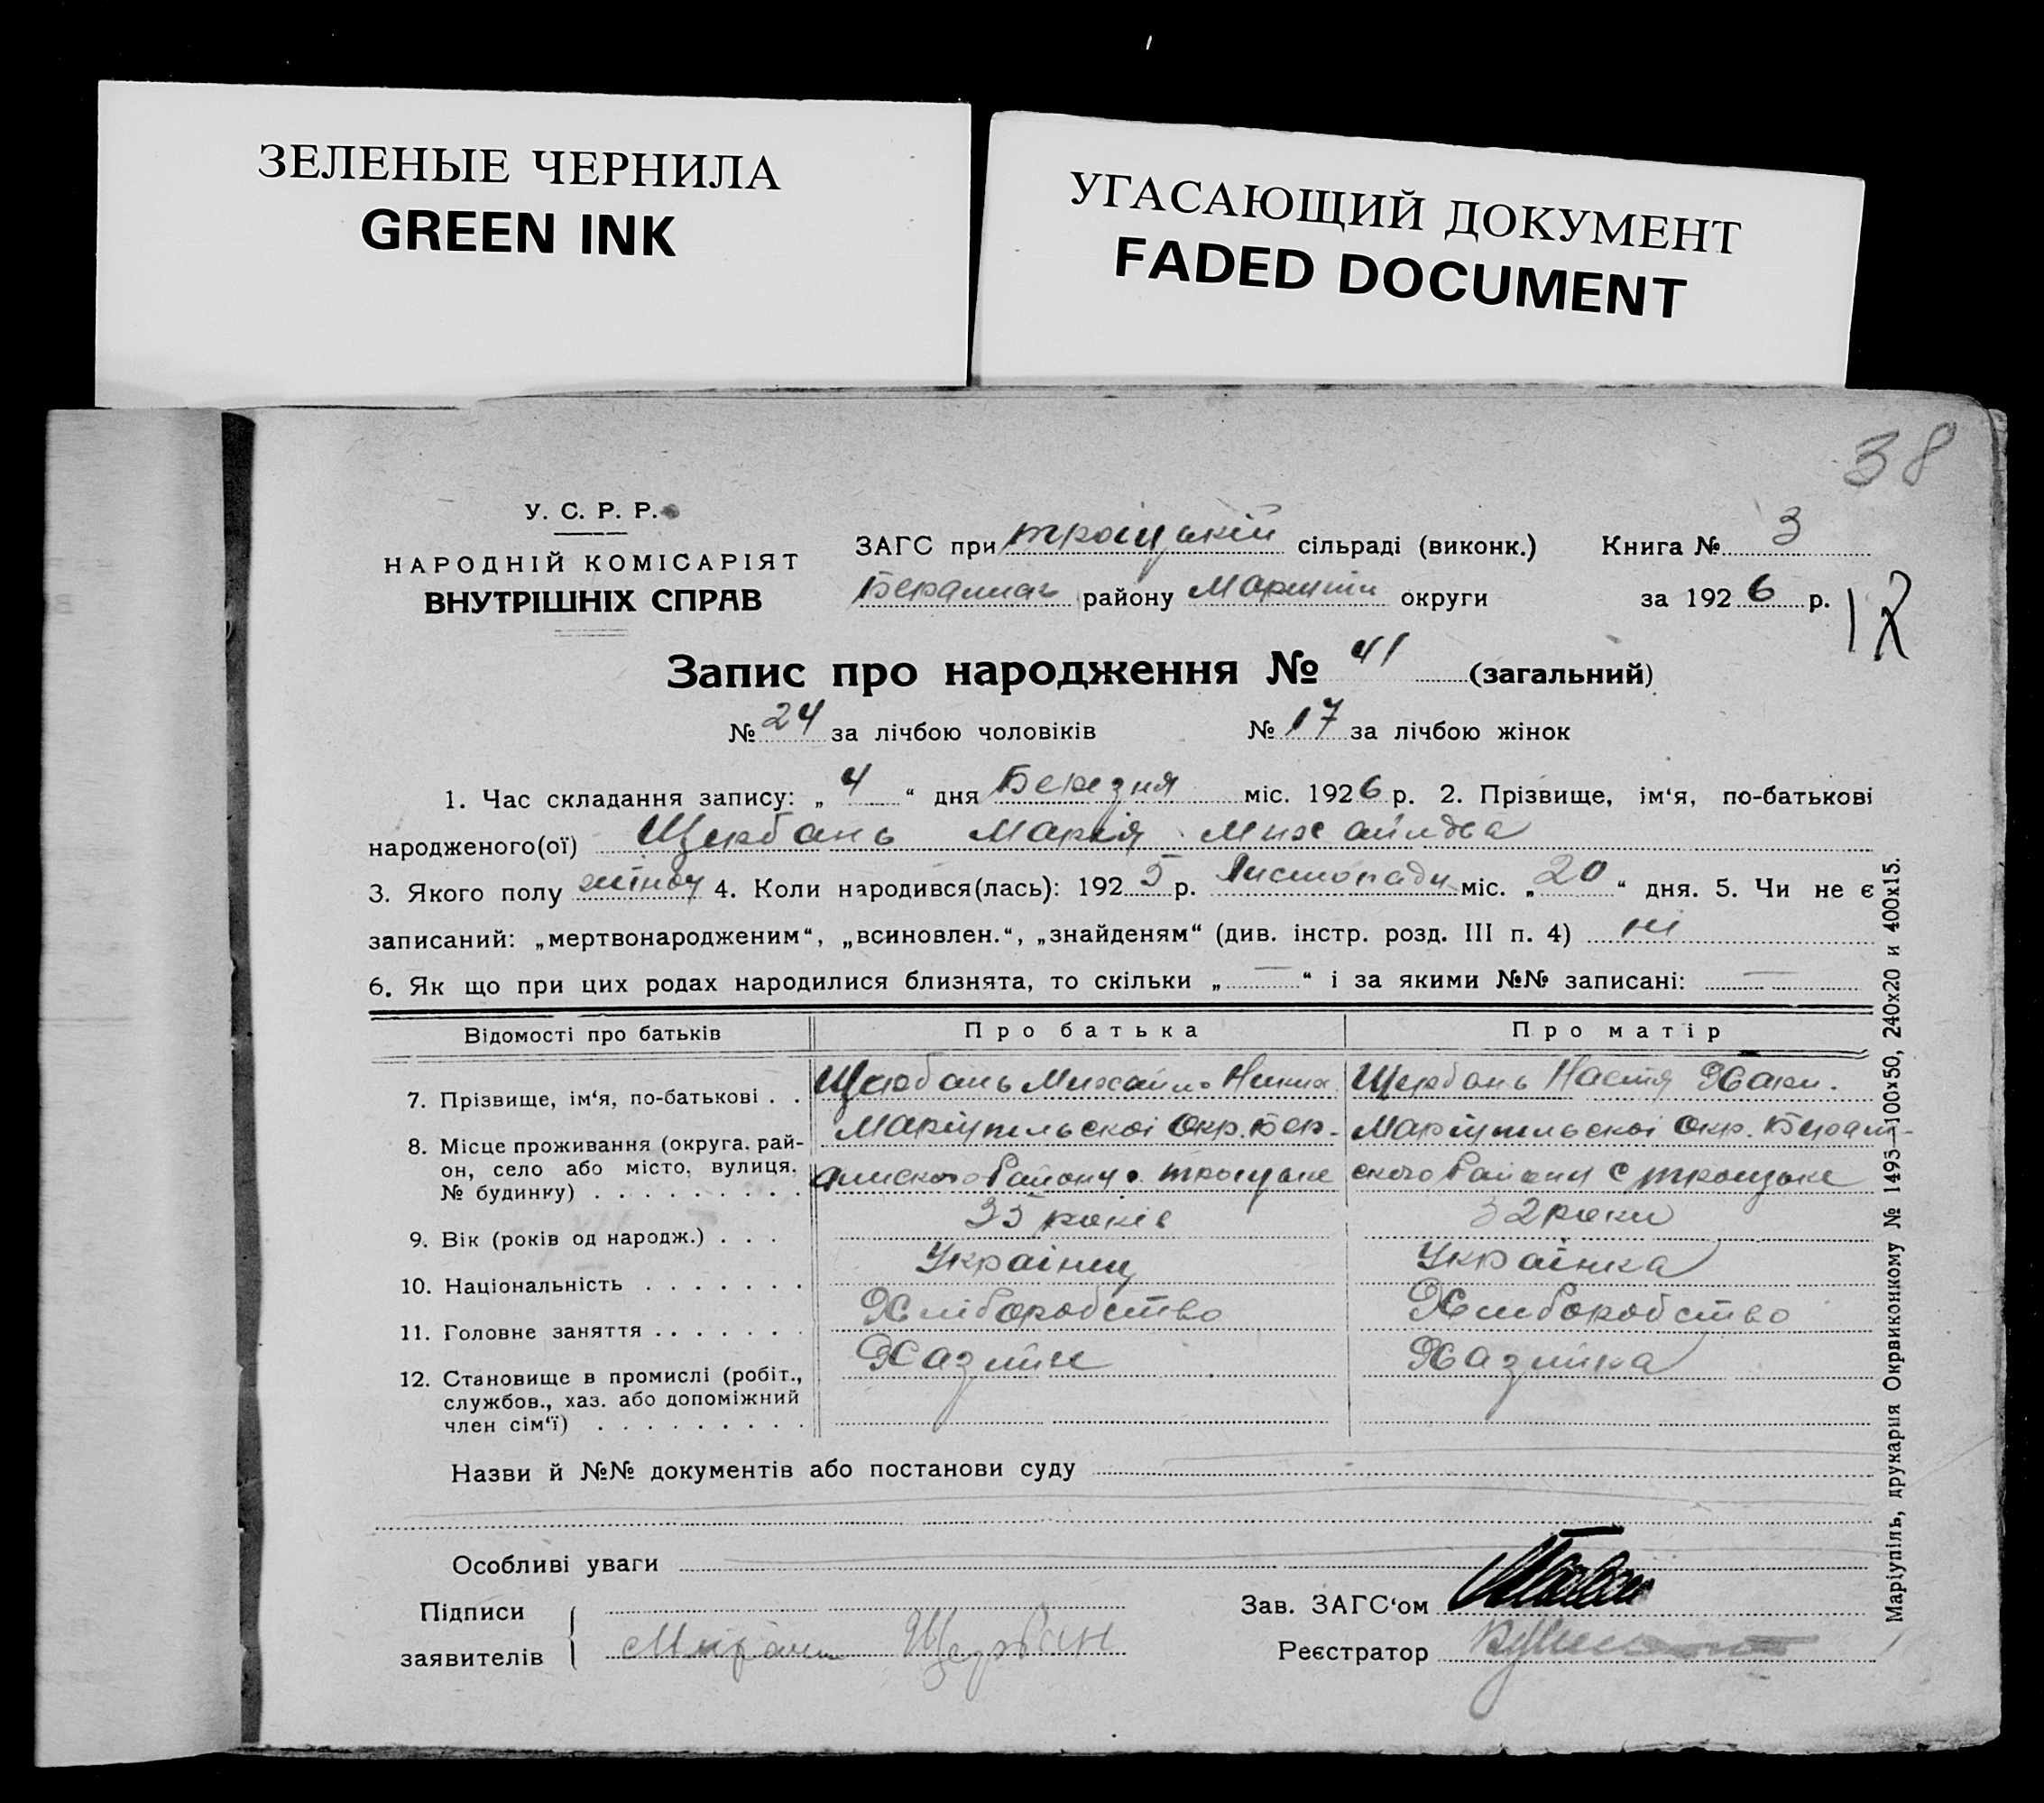 ЗЕЛЕНЫЕ ЧЕРНИЛА
GREEN INK
УГАСАЮЩИЙ ДОКУМЕНТ
FADED DOCUMENT
38
У. С. Р. Р.
НАРОДНІЙ КОМІСАРІЯТ
ВНУТРІШНІХ СПРАВ
ЗАГС при троіцькій сільраді (виконк.) Книга № 3
району Маріупіл округи за 1926 р.
12
Запис про народження № 41 (загальний)
№ 24 за лічбою чоловіків № 17 за лічбою жінок
1. Час складання запису: „ 4 “ дня Березня міс. 1926 р. 2. Прізвище, ім‘я, по-батькові
народженого(ої) Щербань Марія Михайлова
3. Якого полу жіноч 4. Коли народився(лась): 1925 р. Листопаду міс. „ 20 “ дня. 5. Чи не є
записаний: „мертвонародженим“, „всиновлен.“, „знайденям“ (див. інстр. розд. III п. 4) ні
6. Як що при цих родах народилися близнята, то скільки „ — “ і за якими №№ записані: —
Відомості про батьків Про батька Про матір
7. Прізвище, ім‘я, по-батькові . . Щербань Михайло Щербань Настя
8. Місце проживання (округа, рай- Маріупільскоі Окр. Бер- Маріупільскоі Окр.
он, село або місто, вулиця, Району троіцьке ского Району с троіцьке
№ будинку)
9. Вік (років од народж.) . . . 35 років 32 роки
10. Національність . . . . . . . Украінец Украінка
11. Головне заняття . . . . . . . Хліборобство Хліборобство
12. Становище в промислі (робіт., Хазяїн Хазяйка
службов., хаз. або допоміжний
член сім‘ї) . . . . . . . . .
Назви й №№ документів або постанови суду
Особливі уваги
Підписи
заявителів Щербан
Зав. ЗАГС‘ом
Реєстратор
Маріупіль, друкарня Окрвиконкому № 1495—100х50, 240х20 и 400х15.